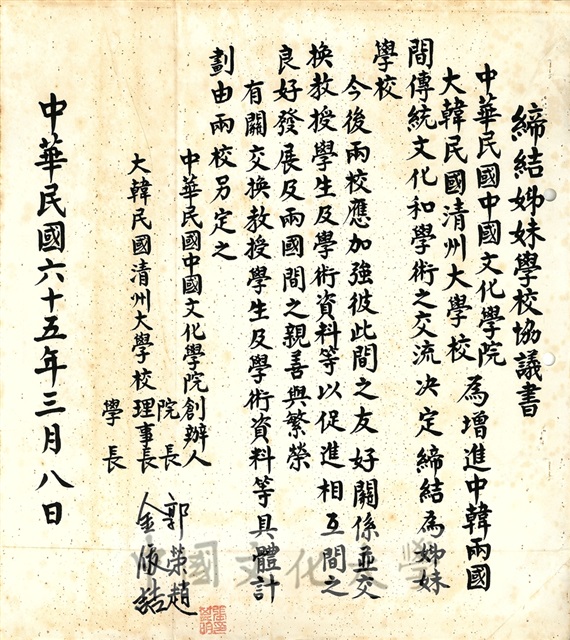 締結姊妹學校協議書
中華民國中國文化學院
大韓民國清州大學校
為增進中韓兩國
間傳統文化和學術之交流決定締結為姊妹
學校
今後兩校應加強彼此間之友好關係並交
換教授學生及學術資料等以促進相互間之
良好發展及兩國間之親善與繁榮
有關交換教授學生及學術資料等具體計
劃由兩校另定之
中華民國中國文化學院創辦人
院長 郭榮趙
大韓民國清州大學校理事長
學長 金
中華民國六十五年三月八日
中國文化大學